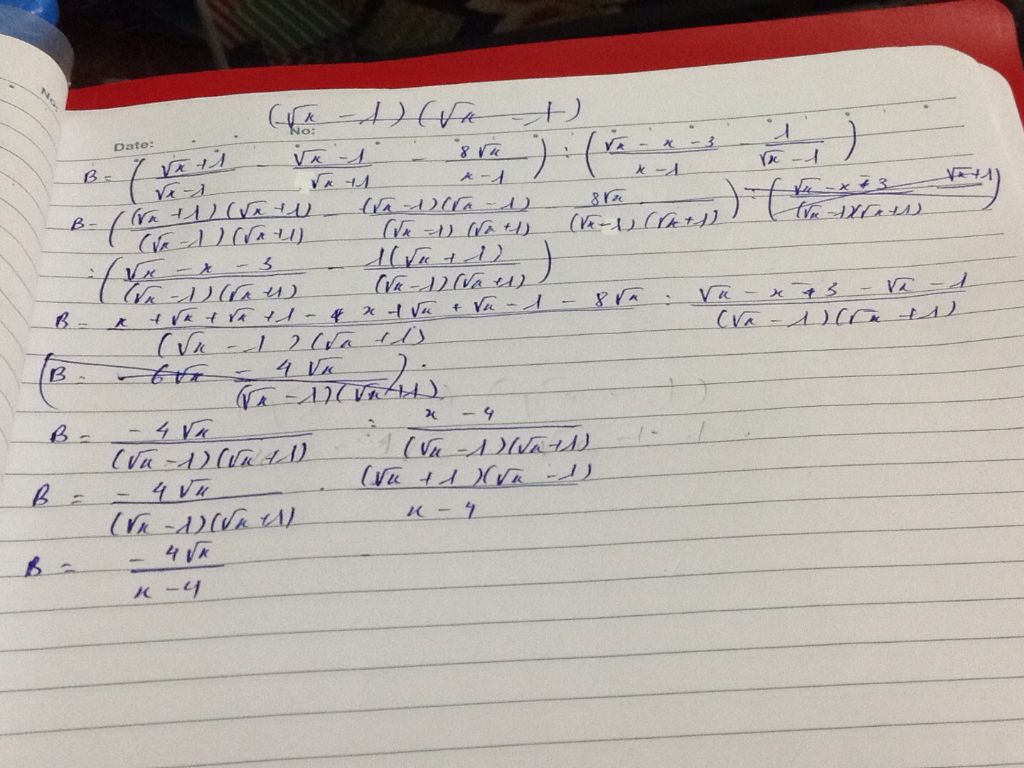 No:
(√x - 1)(√x - 1)
Date: No:
B = ( (√x + 1)/(√x - 1) - (√x - 1)/(√x + 1) - 8√x/(x - 1) ) : ( (√x - x - 3)/(x - 1) - 1/(√x - 1) )
B = ( (√x + 1)(√x + 1)/(√x - 1)(√x + 1) - (√x - 1)(√x - 1)/(√x - 1)(√x + 1) 8√x/(√x - 1)(√x + 1) )
: ( (√x - x - 3)/(√x - 1)(√x + 1) - 1(√x + 1)/(√x - 1)(√x + 1) )
B = (x + √x + √x + 1 - x + √x + √x - 1 - 8√x)/(√x - 1)(√x + 1) : (√x - x + 3 - √x - 1)/(√x - 1)(√x + 1)
B = - 4√x/(√x - 1)(√x + 1) : (x - 4)/(√x - 1)(√x + 1)
B = - 4√x/(√x - 1)(√x + 1) . (√x + 1)(√x - 1)/(x - 4)
B = - 4√x/(x - 4)